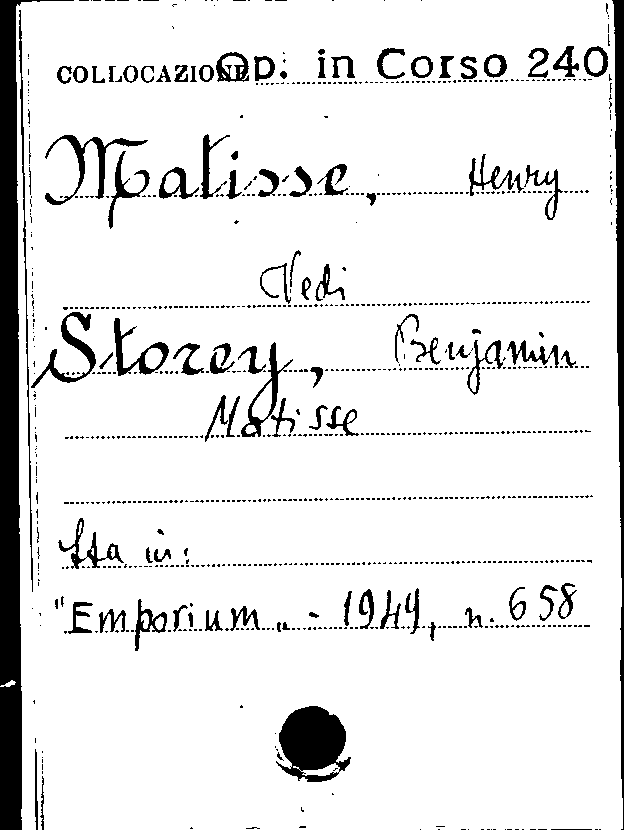 COLLOCAZIONE Op. in Corso 240
Matisse, Henry
Vedi
Storey, Benjamin
Matisse
Sta in:
"Emporium" - 1949, n. 658